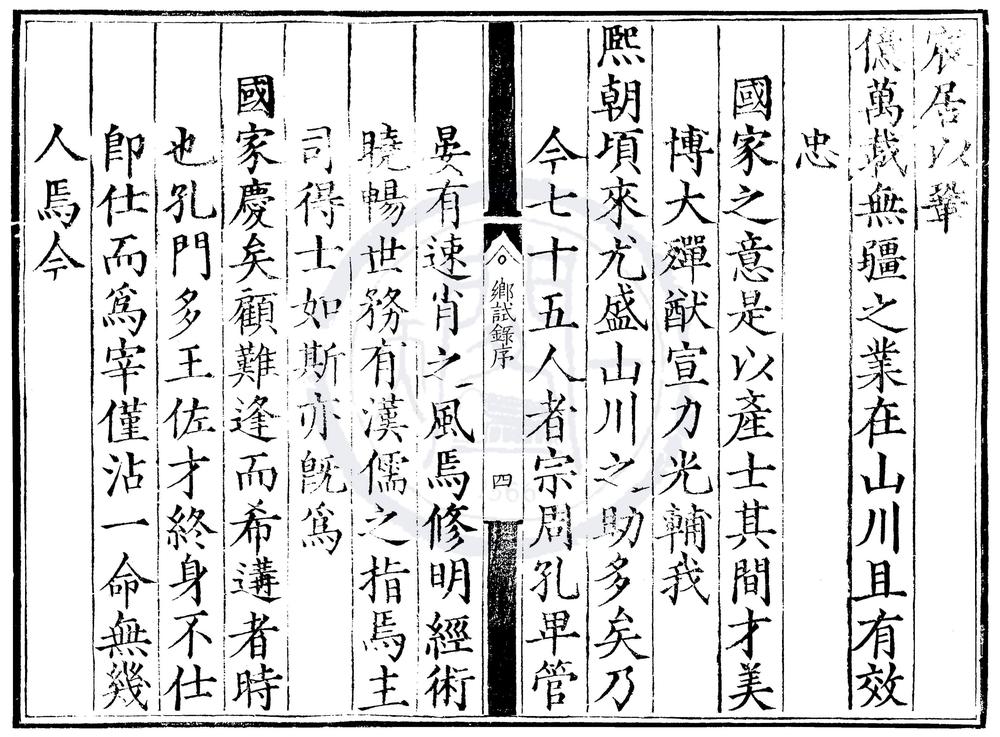 宸居以鞏
億萬載無疆之業在山川且有效
忠
國家之意是以產士其間才美
博大殫猷宣力光輔我
熙朝頃來尤盛山川之助多矣乃
今七十五人者宗周孔卑管
鄉試錄序
四
晏有速肖之風焉修明經術
曉暢世務有漢儒之指焉主
司得士如斯亦旣爲
國家慶矣顧難逢而希遘者時
也孔門多王佐才終身不仕
卽仕而爲宰僅沾一命無幾
人焉今